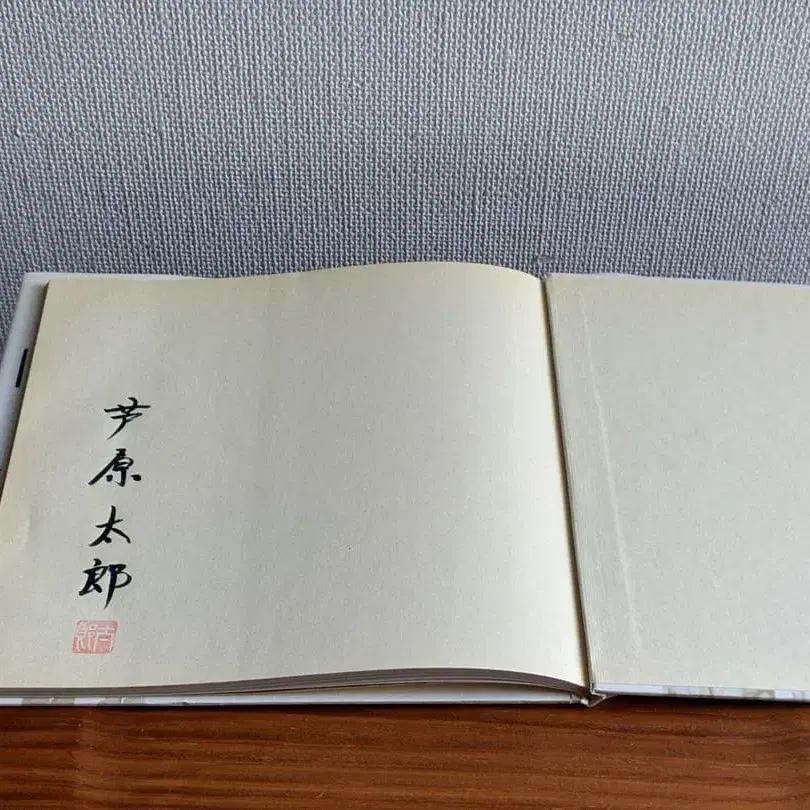 芦原太郎